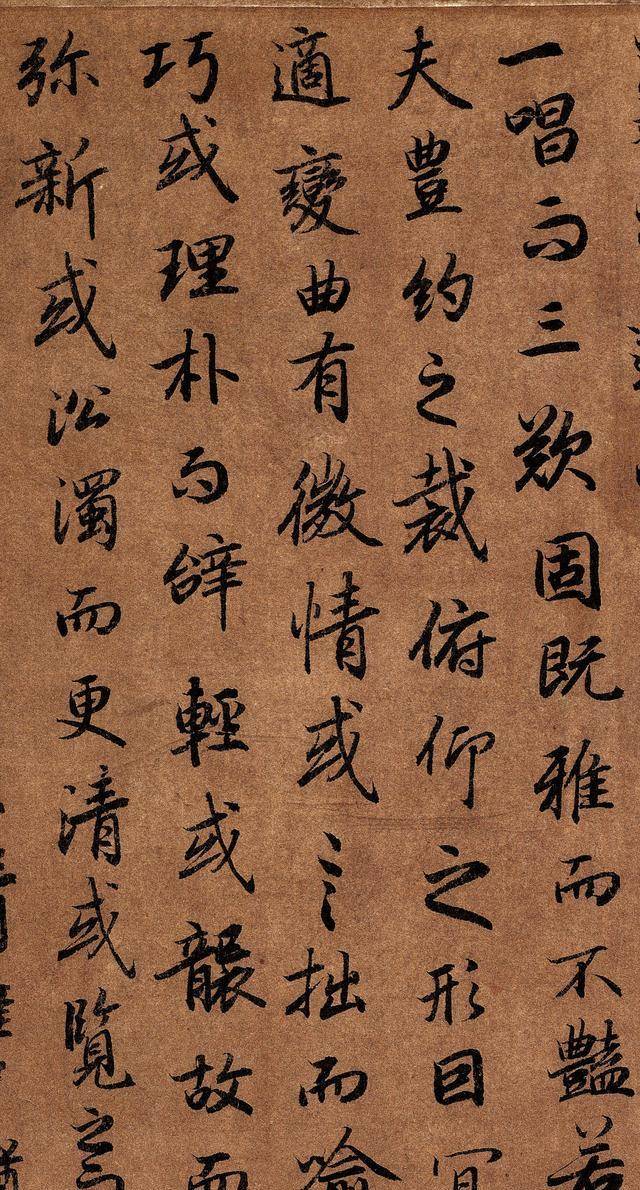 一唱而三歎固既雅而不豔若
夫豊約之裁俯仰之形因宜
適變曲有微情或言拙而喻
巧或理朴而辝輕或襲故而
弥新或沿濁而更清或覽之而